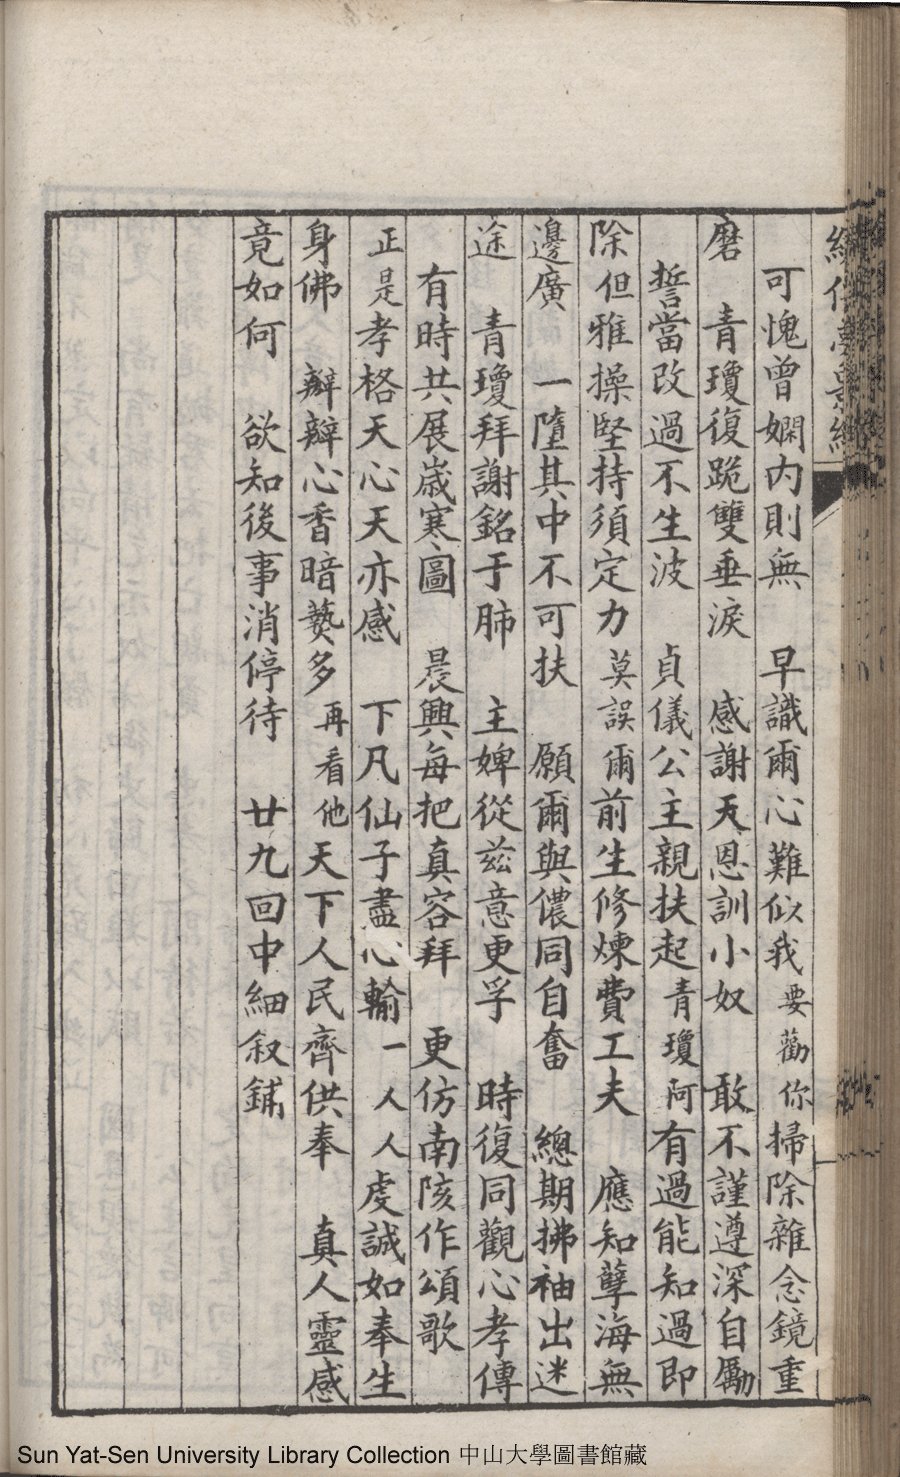 可愧曾嫻内則無　早識爾心難似我　要勸你掃除雜念鏡重
磨　青瓊復跪雙垂淚　感謝天恩訓小奴　敢不謹遵深自勵
誓當改過不生波　貞儀公主親扶起　青瓊阿有過能知過即
除　但雅操堅持須定力　莫誤爾前生修煉費工夫　應知孽海無
邊廣　一墮其中不可扶　願爾與儂同自奮　總期拂袖出迷
途　青瓊拜謝銘于肺　主婢從兹意更孚　時復同觀心孝傳
有時共展歲寒圖　晨興每把真容拜　更仿南陔作頌歌
正是孝格天心天亦感　下凡仙子盡心輸　一人人虔誠如奉生
身佛　瓣瓣心香暗爇多　再看他天下人民齊供奉　真人靈感
竟如何　欲知後事消停待　廿九回中細叙鋪
Sun Yat-Sen University Library Collection 中山大學圖書館藏